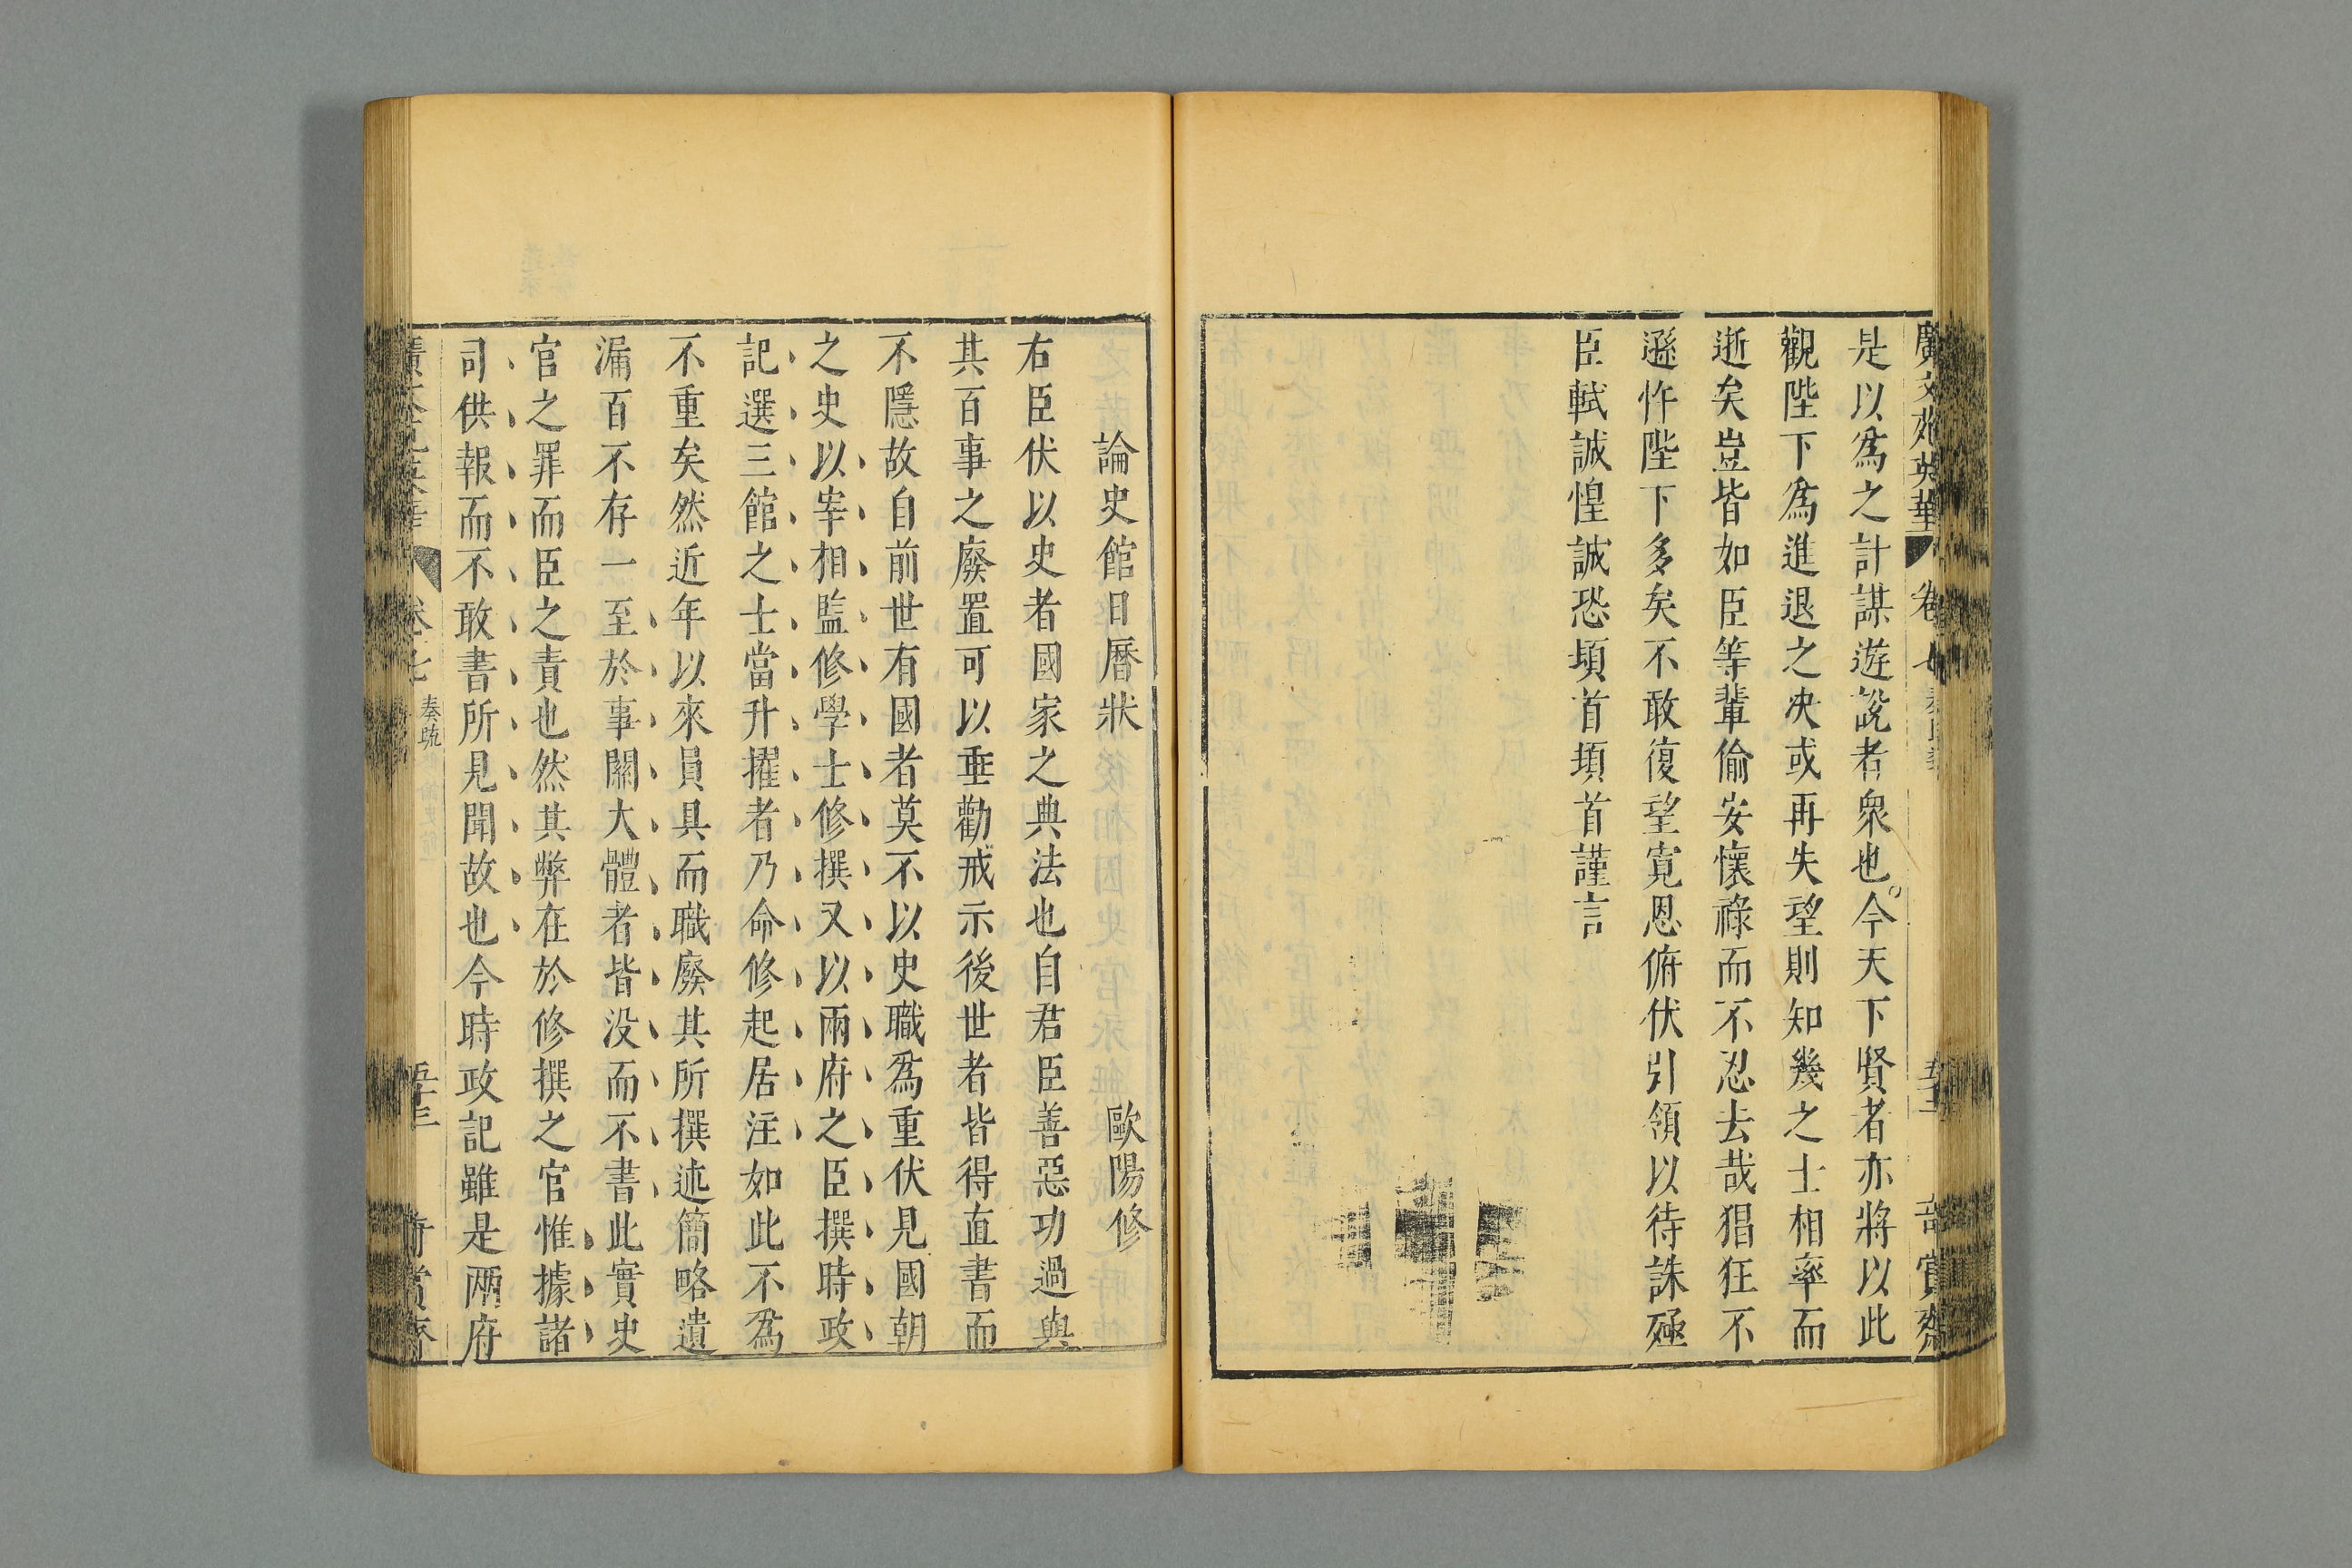 廣文苑英華 卷七
是以爲之計謀遊說者衆也今天下賢者亦將以此
觀陛下爲進退之决或再失望則知幾之士相率而
逝矣豈皆如臣等輩偷安懷祿而不忍去哉猖狂不
遜忤陛下多矣不敢復望寛恩俯伏引領以待誅殛
臣軾誠惶誠恐頓首頓首謹言
論史館日曆狀 歐陽修
右臣伏以史者國家之典法也自君臣善惡功過與
其百事之廢置可以垂勸戒示後世者皆得直書而
不隱故自前世有國者莫不以史職爲重伏見國朝
之史以宰相監修學士修撰又以兩府之臣撰時政
記選三館之士當升擢者乃命修起居注如此不爲
不重矣然近年以來員具而職廢其所撰述簡略遺
漏百不存一至於事關大體者皆没而不書此實史
官之罪而臣之責也然其弊在於修撰之官惟據諸
司供報而不敢書所見聞故也今時政記雖是兩府
卷七 奏疏